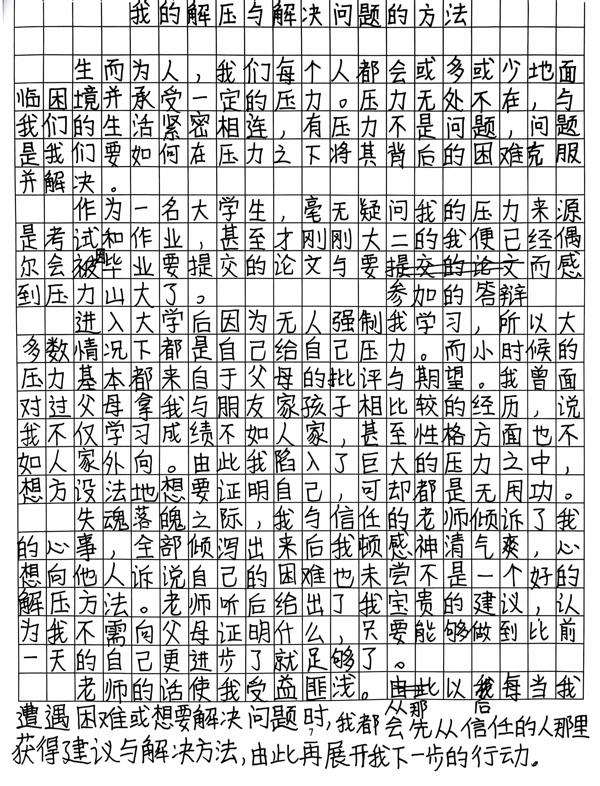 我的解压与解决问题的方法
生而为人，我们每个人都会或多或少地面
临困境并承受一定的压力。压力无处不在，与
我们的生活紧密相连，有压力不是问题，问题
是我们要如何在压力之下将其背后的困难克服
并解决。
作为一名大学生，毫无疑问我的压力来源
是考试和作业，甚至才刚刚大二的我便已经偶
尔会被因毕业要提交的论文与要提交的论文而感
到压力山大了。参加的答辩
进入大学后因为无人强制我学习，所以大
多数情况下都是自己给自己压力。而小时候的
压力基本都来自于父母的批评与期望。我曾面
对过父母拿我与朋友家孩子相比较的经历，说
我不仅学习成绩不如人家，甚至性格方面也不
如人家外向。由此我陷入了巨大的压力之中，
想方设法地想要证明自己，可却都是无用功。
失魂落魄之际，我与信任的老师倾诉了我
的心事，全部倾泻出来后我顿感神清气爽，心
想向他人诉说自己的困难也未尝不是一个好的
解压方法。老师听后给出了我宝贵的建议，认
为我不需向父母证明什么，只要能够做到比前
一天的自己更进步了就足够了。
老师的话使我受益匪浅。由此从那以后每当我
遭遇困难或想要解决问题时，我都会先从信任的人那里
获得建议与解决方法，由此再展开我下一步的行动。